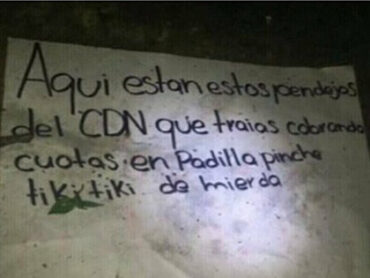 Aqui estan estos pendejos
del CDN que traias cobrando
cuotas en Padilla pinche
tiki tiki de mierda